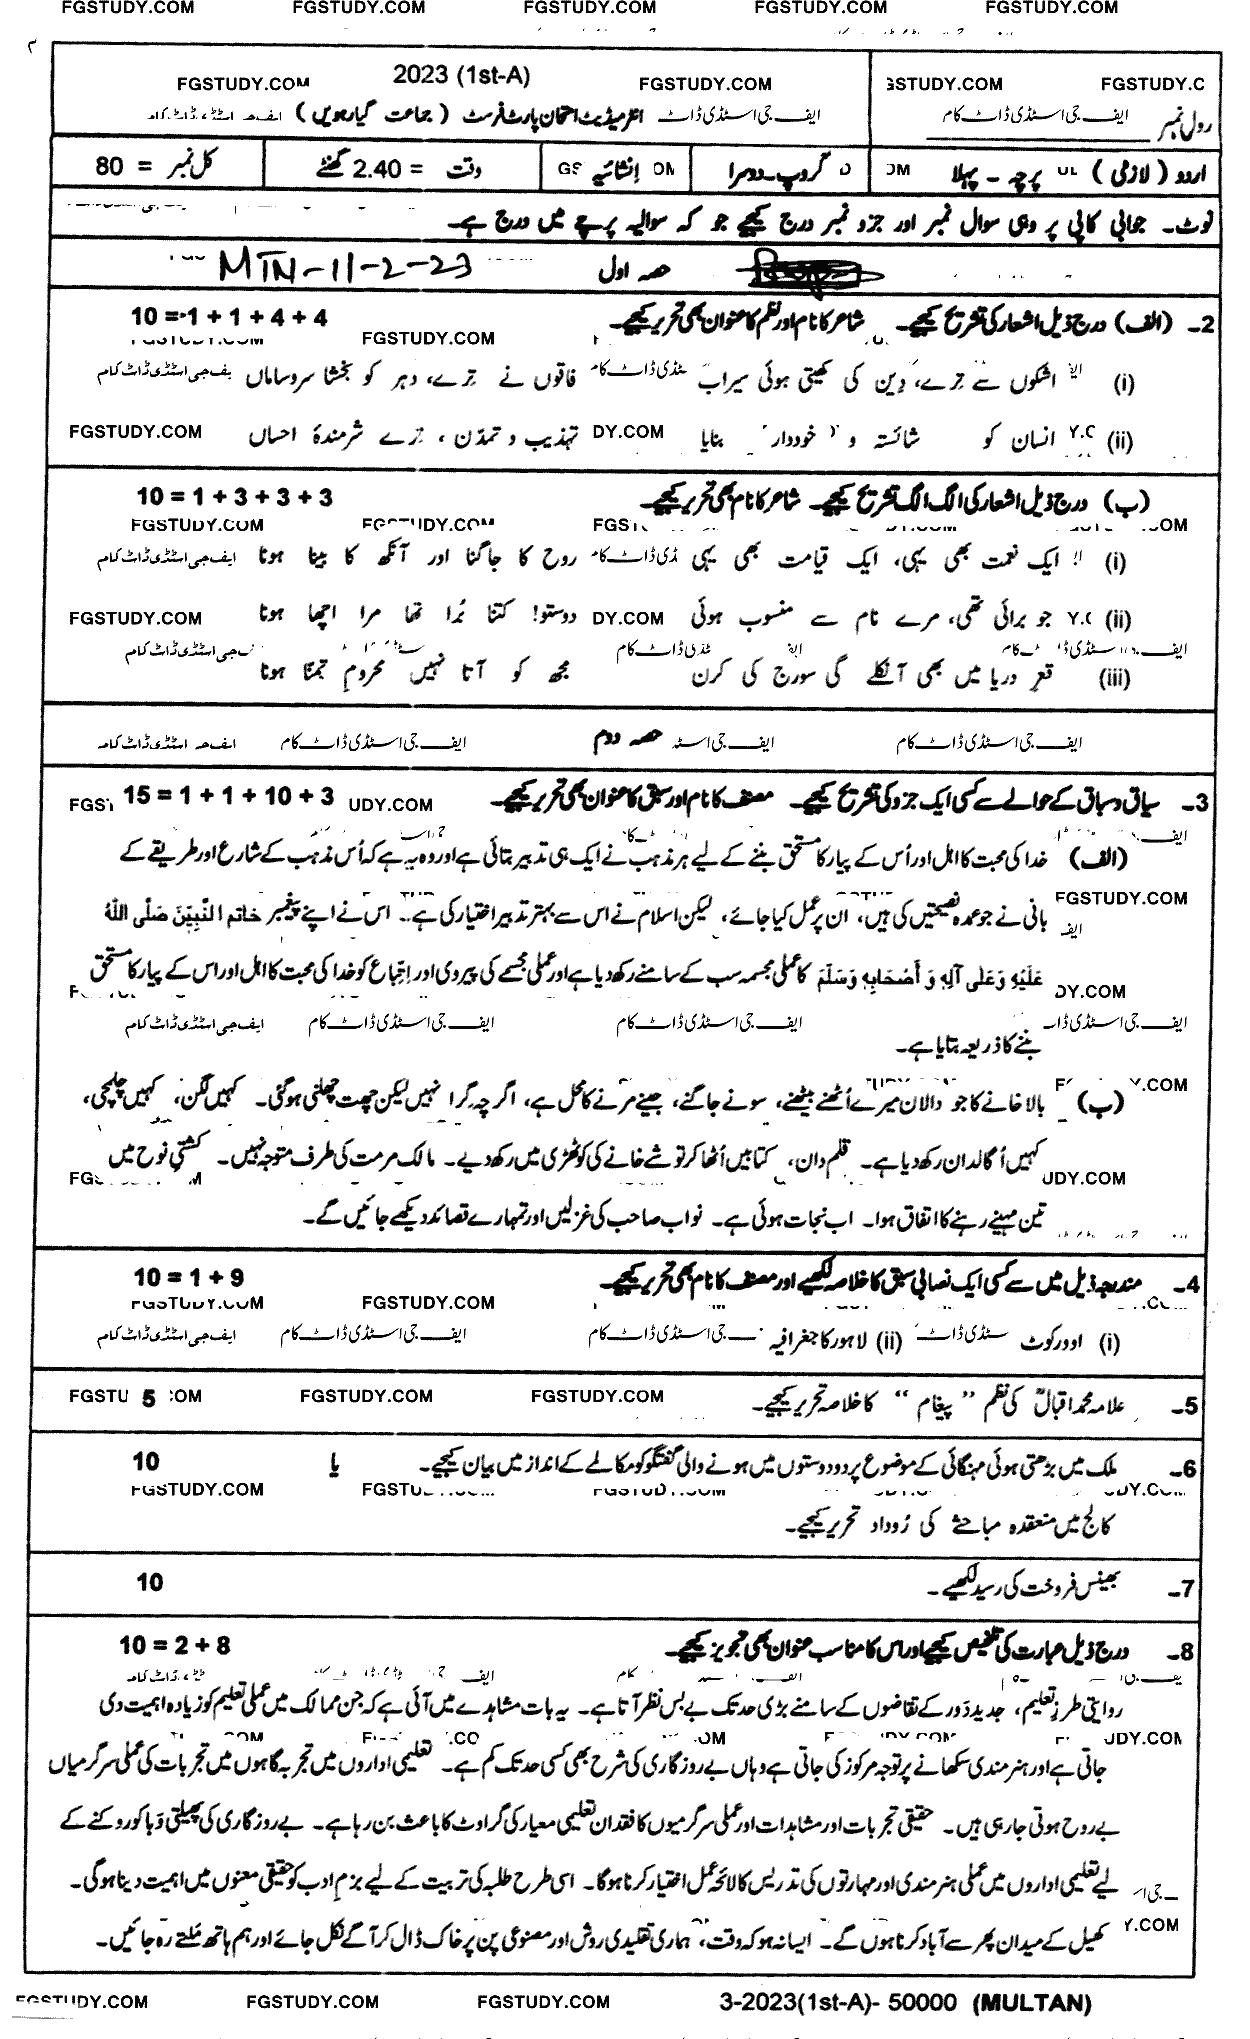 FGSTUDY.COM FGSTUDY.COM FGSTUDY.COM FGSTUDY.COM FGSTUDY.COM
۲
2023 (1st-A)
FGSTUDY.COM FGSTUDY.COM GSTUDY.COM FGSTUDY.C
رول نمبر ایف جی اسٹڈی ڈاٹ کام
انٹرمیڈیٹ امتحان پارٹ فرسٹ ( جماعت گیارہویں ) ایف جی اسٹڈی ڈاٹ کام
اردو ( لازمی ) پرچہ ۔ پہلا گروپ۔دوسرا اِنشائیہ وقت = 2.40 گھنٹے کل نمبر = 80
نوٹ۔ جوابی کاپی پر وہی سوال نمبر اور جزو نمبر درج کیجیے جو کہ سوالیہ پرچے میں درج ہے۔
حصہ اول MTN-11-2-23
2۔ (الف) درج ذیل اشعار کی تشریح کیجیے۔ شاعر کا نام اور نظم کا عنوان بھی تحریر کیجیے۔ 10 = 1 + 1 + 4 + 4
FGSTUDY.COM FGSTUDY.COM
(i) اشکوں سے ترے، دین کی کھیتی ہوئی سیراب فاقوں نے ترے، دہر کو بخشا سروساماں
(ii) انسان کو شائستہ و خوددار بنایا تہذیب و تمدّن ، ترے شرمندۂ احساں
FGSTUDY.COM DY.COM
(ب) درج ذیل اشعار کی الگ الگ تشریح کیجیے۔ شاعر کا نام بھی تحریر کیجیے۔ 10 = 1 + 3 + 3 + 3
FGSTUDY.COM
(i) ایک نعمت بھی یہی، ایک قیامت بھی یہی روح کا جاگنا اور آنکھ کا بینا ہونا
(ii) جو برائی تھی، مرے نام سے منسوب ہوئی دوستو! کتنا بُرا تھا مرا اچھا ہونا
FGSTUDY.COM DY.COM
(iii) قعرِ دریا میں بھی آ نکلے گی سورج کی کرن مجھ کو آتا نہیں محرومِ تمنّا ہونا
حصہ دوم
ایف جی اسٹڈی ڈاٹ کام ایف جی اسٹڈی ڈاٹ کام
3۔ سیاق و سباق کے حوالے سے کسی ایک جزو کی تشریح کیجیے۔ مصنف کا نام اور سبق کا عنوان بھی تحریر کیجیے۔ 15 = 1 + 1 + 10 + 3
(الف) خدا کی محبت کا اہل اور اُس کے پیار کا مستحق بننے کے لیے ہر مذہب نے ایک ہی تدبیر بتائی ہے اور وہ یہ ہے کہ اُس مذہب کے شارع اور طریقے کے
بانی نے جو عمدہ نصیحتیں کی ہیں، ان پر عمل کیا جائے، لیکن اسلام نے اس سے بہتر تدبیر اختیار کی ہے۔ اس نے اپنے پیغمبر خاتم النَّبِیّنَ صَلَّی اللّٰہُ
عَلَیْہِ وَعَلٰی آلِہٖ وَ أَصْحَابِہٖ وَسَلَّمَ کا عملی مجسمہ سب کے سامنے رکھ دیا ہے اور عملی مجسمے کی پیروی اور اتباع کو خدا کی محبت کا اہل اور اس کے پیار کا مستحق
ایف جی اسٹڈی ڈاٹ کام ایف جی اسٹڈی ڈاٹ کام ایف جی اسٹڈی ڈاٹ کام
بننے کا ذریعہ بتایا ہے۔
(ب) بالا خانے کا جو دالان میرے اُٹھنے بیٹھنے، سونے جاگنے، جینے مرنے کا محل ہے، اگرچہ گرا نہیں لیکن چھت چھلنی ہو گئی۔ کہیں لگن، کہیں چلمچی،
کہیں اُگالدان رکھ دیا ہے۔ قلم دان، کتابیں اُٹھا کر توشے خانے کی کوٹھڑی میں رکھ دیے۔ مالک مرمت کی طرف متوجہ نہیں۔ کشتیِ نوح میں
تین مہینے رہنے کا اتفاق ہوا۔ اب نجات ہوئی ہے۔ نواب صاحب کی غزلیں اور تمہارے قصائد دیکھے جائیں گے۔
4۔ مندرجہ ذیل میں سے کسی ایک نصابی سبق کا خلاصہ لکھیے اور مصنف کا نام بھی تحریر کیجیے۔ 10 = 1 + 9
FGSTUDY.COM FGSTUDY.COM
(i) اوورکوٹ (ii) لاہور کا جغرافیہ
5۔ علامہ محمد اقبالؒ کی نظم " پیغام " کا خلاصہ تحریر کیجیے۔ 5
FGSTUDY.COM FGSTUDY.COM
6۔ ملک میں بڑھتی ہوئی مہنگائی کے موضوع پر دو دوستوں میں ہونے والی گفتگو کو مکالمے کے انداز میں بیان کیجیے۔ یا 10
FGSTUDY.COM
کالج میں منعقدہ مباحثے کی رُوداد تحریر کیجیے۔
7۔ بھینس فروخت کی رسید لکھیے۔ 10
8۔ درج ذیل عبارت کی تلخیص کیجیے اور اس کا مناسب عنوان بھی تجویز کیجیے۔ 10 = 2 + 8
روایتی طرزِ تعلیم، جدید دَور کے تقاضوں کے سامنے بڑی حد تک بے بس نظر آتا ہے۔ یہ بات مشاہدے میں آئی ہے کہ جن ممالک میں عملی تعلیم کو زیادہ اہمیت دی
جاتی ہے اور ہنر مندی سکھانے پر توجہ مرکوز کی جاتی ہے وہاں بے روزگاری کی شرح بھی کسی حد تک کم ہے۔ تعلیمی اداروں میں تجربہ گاہوں میں تجربات کی عملی سرگرمیاں
بے روح ہوتی جا رہی ہیں۔ حقیقی تجربات اور مشاہدات اور عملی سرگرمیوں کا فقدان تعلیمی معیار کی گراوٹ کا باعث بن رہا ہے۔ بے روزگاری کی پھیلتی وَبا کو روکنے کے
لیے تعلیمی اداروں میں عملی ہنر مندی اور مہارتوں کی تدریس کا لائحہ عمل اختیار کرنا ہوگا۔ اسی طرح طلبہ کی تربیت کے لیے بزمِ ادب کو حقیقی معنوں میں اہمیت دینا ہوگی۔
کھیل کے میدان پھر سے آباد کرنا ہوں گے۔ ایسا نہ ہو کہ وقت، ہماری تقلیدی روش اور مصنوعی پن پر خاک ڈال کر آگے نکل جائے اور ہم ہاتھ مَلتے رہ جائیں۔
FGSTUDY.COM FGSTUDY.COM FGSTUDY.COM 3-2023(1st-A)- 50000 (MULTAN)